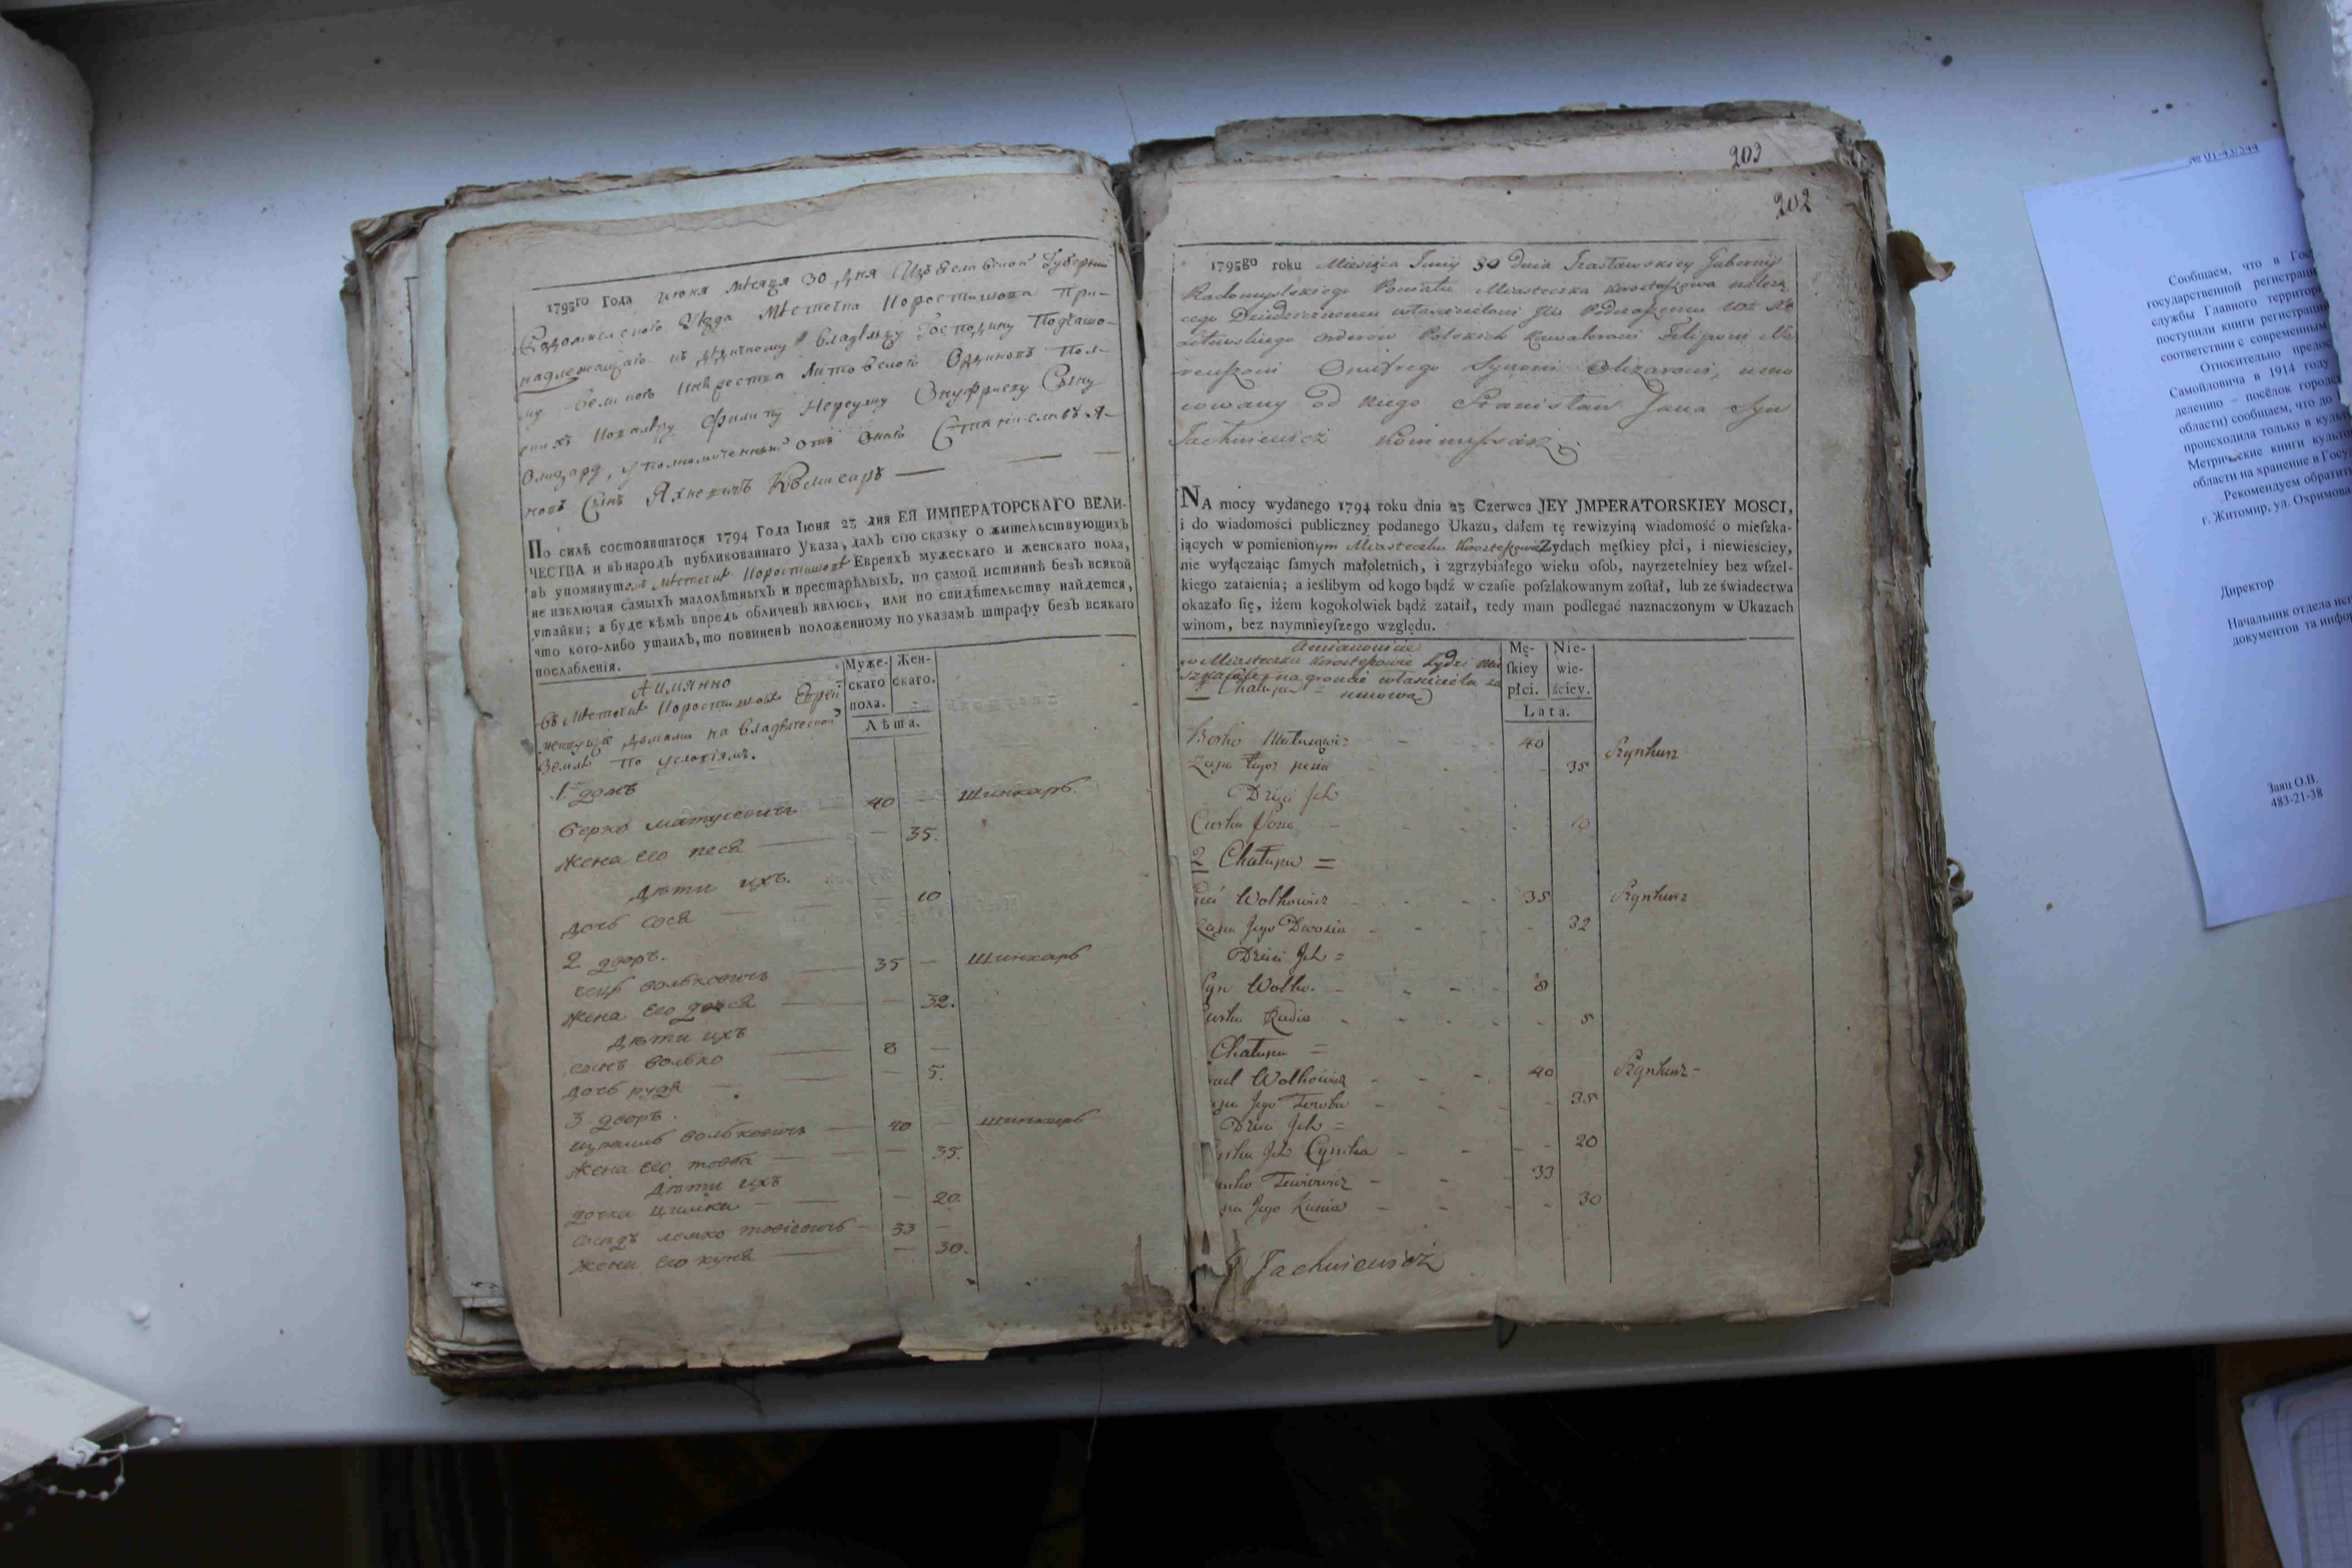 1795го Года июня мѣсяца 30 дня Изъяславской Губернии
Радомысльского Уѣзда Мѣстечка Коростишова При-
надлежащаго къ дѣдичному владѣльцу Господину Подчашо-
му Великого Литовского Ординовъ Пол-
скихъ Кавалѣру Филипу Нереушу Онуфриеву Сыну
Олизару, уполномоченный отъ оного Станиславъ Я-
новъ Сынъ Яхневичъ Комисаръ
По силѣ состоявшагося 1794 Года Іюня 23 дня ЕЯ ИМПЕРАТОРСКАГО ВЕЛИ-
ЧЕСТВА и въ народъ публикованнаго Указа, далъ сію сказку о жительствующихъ
въ упомянутомъ мѣстечкѣ Коростишовѣ Евреяхъ мужескаго и женскаго пола,
не изключая самыхъ малолѣтныхъ и престарѣлыхъ, по самой истиннѣ безъ всякой
утайки; а буде кѣмъ впредь обличенъ явлюсь, или по свидѣтельству найдется,
что кого-либо утаилъ, то повиненъ положенному по указамъ штрафу безъ всякаго
послабленія.
Муже- Жен-
скаго скаго.
пола.
Лѣта.
А имянно
въ мѣстечкѣ Коростишовѣ Евреи
живущіе домами на владѣлческой
Землѣ по условіямъ.
1. домъ
берко матусевичъ 40 — Шинкарь
жена его песя — 35.
дѣти ихъ.
дочь сося — 10
2 дворъ.
волковичъ 35 — Шинкарь
жена его — 32.
дѣти ихъ
сынъ волко 8 —
дочь рудя — 5.
3 дворъ.
израиль волковичъ 40 — шинкарь
жена его товба — 35.
дѣти ихъ
дочка цимка — 20.
сосѣдъ лемко товіевичъ 33 —
жена его куня — 30.
203
202
1795go roku Miesiąca Juny 30 dnia Izasławskiey Gubernij
Radomyslskiego Powiatu Miasteczka Korostyszowa należą
cego Dziedzicznemu właścicielowi JW Podczaszemu
Litewskiego orderow Polskich Kawalerowi Filipowi Ne
reuszowi Onufrego Synowi Olizarowi, umo
cowany od niego Stanisław Jana Syn
Jachniewicz Kommissarz
NA mocy wydanego 1794 roku dnia 23 Czerwca JEY JMPERATORSKIEY MOSCI,
i do wiadomości publiczney podanego Ukazu, dałem tę rewizyiną wiadomość o mieſzka-
iących w pomienionym Miasteczku Korostyszowie Żydach męſkiey płci, i niewieściey,
nie wyłączaiąc ſamych małoletnich, i zgrzybiałego wieku oſob, nayrzetelniey bez wſzel-
kiego zataienia; a ieślibym od kogo bądź w czaſie poſzlakowanym zoſtał, lub ze świadectwa
okazało ſię, iżem kogokolwiek bądź zataił, tedy mam podlegać naznaczonym w Ukazach
winom, bez naymnieyſzego względu.
Mę- Nie-
ſkiey wie-
płci. ściey.
Lata.
Amianowicie
w Miasteczku Korostyszowie Żydzi mie
szkaiący na groncie właściciela za
1 Chałupa = umową
Berko Matusowicz 40 Szynkarz
Żona Jego pesia 35
Dzieci Jch
Curka Sosia 10
2 Chałupa =
Wolkowicz 35 Szynkarz
Żona Jego Dwosia 32
Dzieci Jch =
Syn Wolko. 8
Curka Rudia 5
Chałupa =
Wolkowicz 40 Szynkarz
Jego Towba 35
Dzieci Jch =
Jch Cymka 20
Tewiowicz 33
Jego Kunia 30
Jachniewicz
№ 01-43/344
Сообщаем, что в Гос
государственной регистраци
службы Главного территор
поступили книги регистраци
соответствии с современным
Относительно предос
Самойловича в 1914 году
делению – посёлок городс
области) сообщаем, что до
происходила только в куль
Метрические книги культо
области на хранение в Госу
Рекомендуем обратить
г. Житомир, ул. Охримова
Директор
Начальник отдела исп
документов та инфор
Заяц О.В.
483-21-38